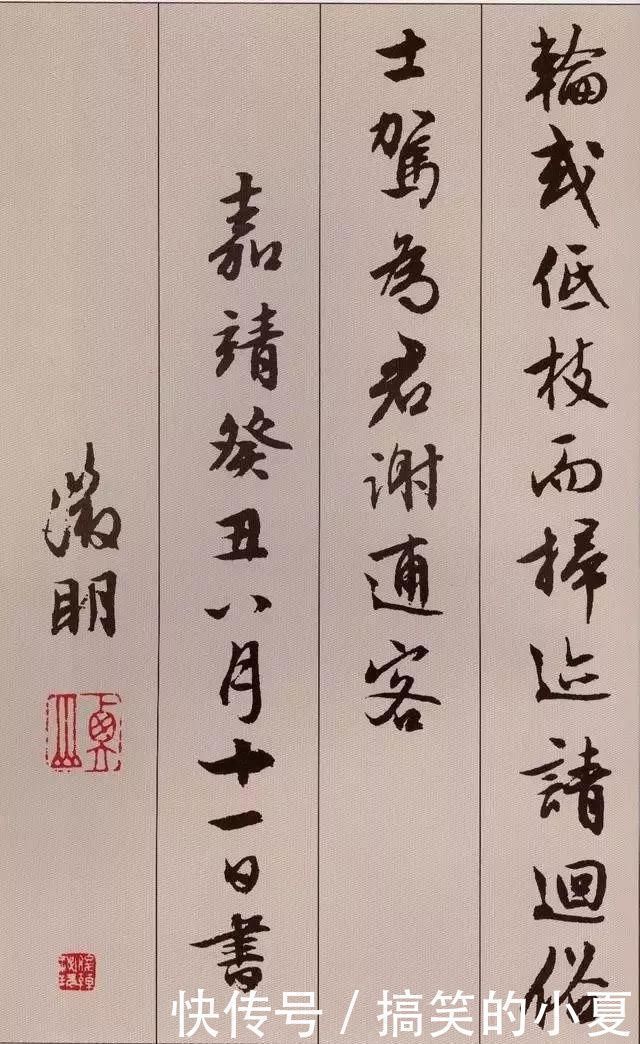 輪或低枝而掃迹請迴俗
士駕為君謝逋客
嘉靖癸丑八月十一日書
徵明
快传号 / 搞笑的小夏